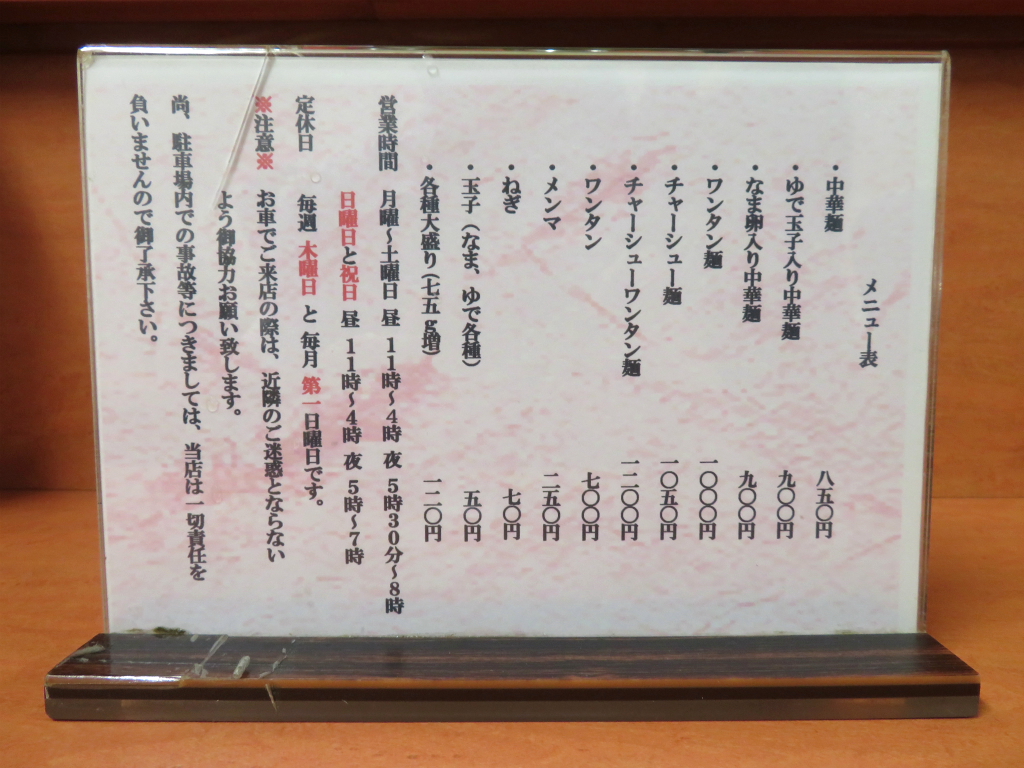 メニュー表
・中華麺 八五〇円
・ゆで玉子入り中華麺 九〇〇円
・なま卵入り中華麺 九〇〇円
・ワンタン麺 一〇〇〇円
・チャーシュー麺 一〇五〇円
・チャーシューワンタン麺 一二〇〇円
・ワンタン 七〇〇円
・メンマ 二五〇円
・ねぎ 七〇円
・玉子（なま、ゆで各種） 五〇円
・各種大盛り（七五ｇ増） 一二〇円
営業時間 月曜～土曜日 昼 １１時～４時 夜 ５時３０分～８時
日曜日と祝日 昼 １１時～４時 夜 ５時～７時
定休日 毎週 木曜日 と 毎月 第一日曜日です。
※注意※ お車でご来店の際は、近隣のご迷惑とならない
よう御協力お願い致します。
尚、駐車場内での事故等につきましては、当店は一切責任を
負いませんので御了承下さい。